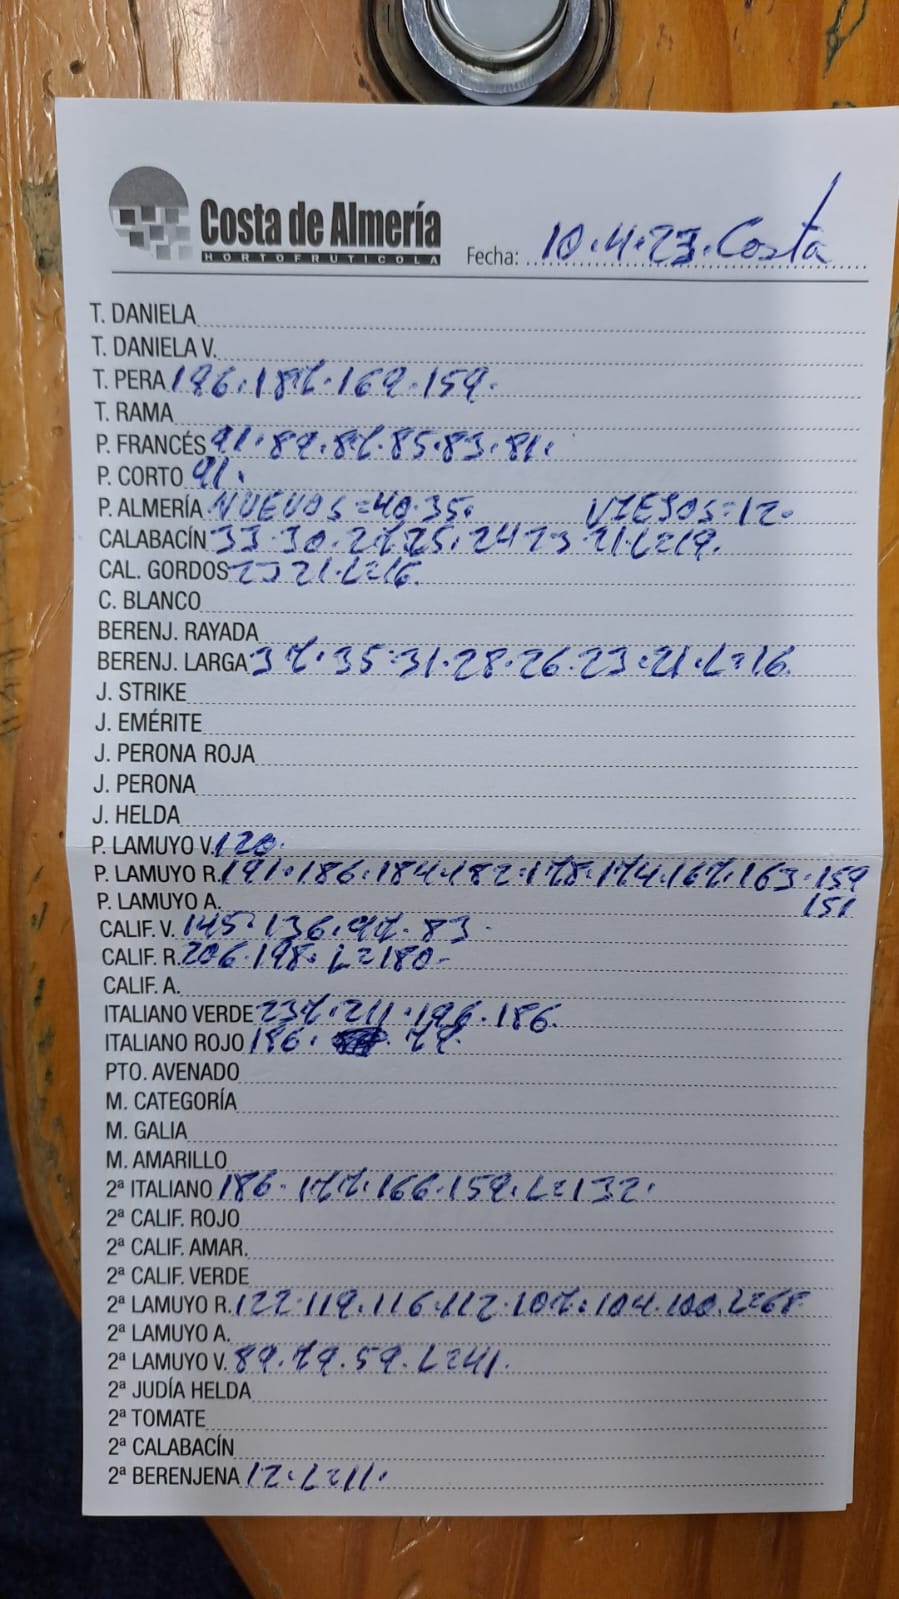 Costa de Almería
HORTOFRUTICOLA
Fecha: 10.4.23. Costa
T. DANIELA
T. DANIELA V.
T. PERA 196.187.169.159.
T. RAMA
P. FRANCÉS 91.89.87.85.83.81.
P. CORTO 91.
P. ALMERÍA NUEVOS=40.35. VIEJOS=12.
CALABACÍN 33.30.27.25.24 23 21.L=19.
CAL. GORDOS 23 21.L=16.
C. BLANCO
BERENJ. RAYADA
BERENJ. LARGA 37.35.31.28.26.23.21.L=16.
J. STRIKE
J. EMÉRITE
J. PERONA ROJA
J. PERONA
J. HELDA
P. LAMUYO V. 120.
P. LAMUYO R. 191.186.184.182.178.174.167.163.159
P. LAMUYO A. 151
CALIF. V. 145.136.97.83.
CALIF. R. 206.198.L=180.
CALIF. A.
ITALIANO VERDE 237.211.196.186.
ITALIANO ROJO 186.
PTO. AVENADO
M. CATEGORÍA
M. GALIA
M. AMARILLO
2ª ITALIANO 186.177.166.159.L=132.
2ª CALIF. ROJO
2ª CALIF. AMAR.
2ª CALIF. VERDE
2ª LAMUYO R. 122.119.116.112.107.104.100.L=68
2ª LAMUYO A.
2ª LAMUYO V. 89.79.59.L=41.
2ª JUDÍA HELDA
2ª TOMATE
2ª CALABACÍN
2ª BERENJENA 12.L=11.